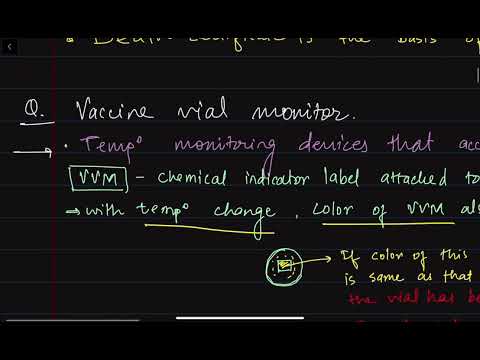 is the basis of
Q. Vaccine vial monitor.
→ • Temp° monitoring devices that acc
VVM - chemical indicator label attached to
⇒ with temp° change, color of VVM als
→ If color of this
is same as that
the vial has be